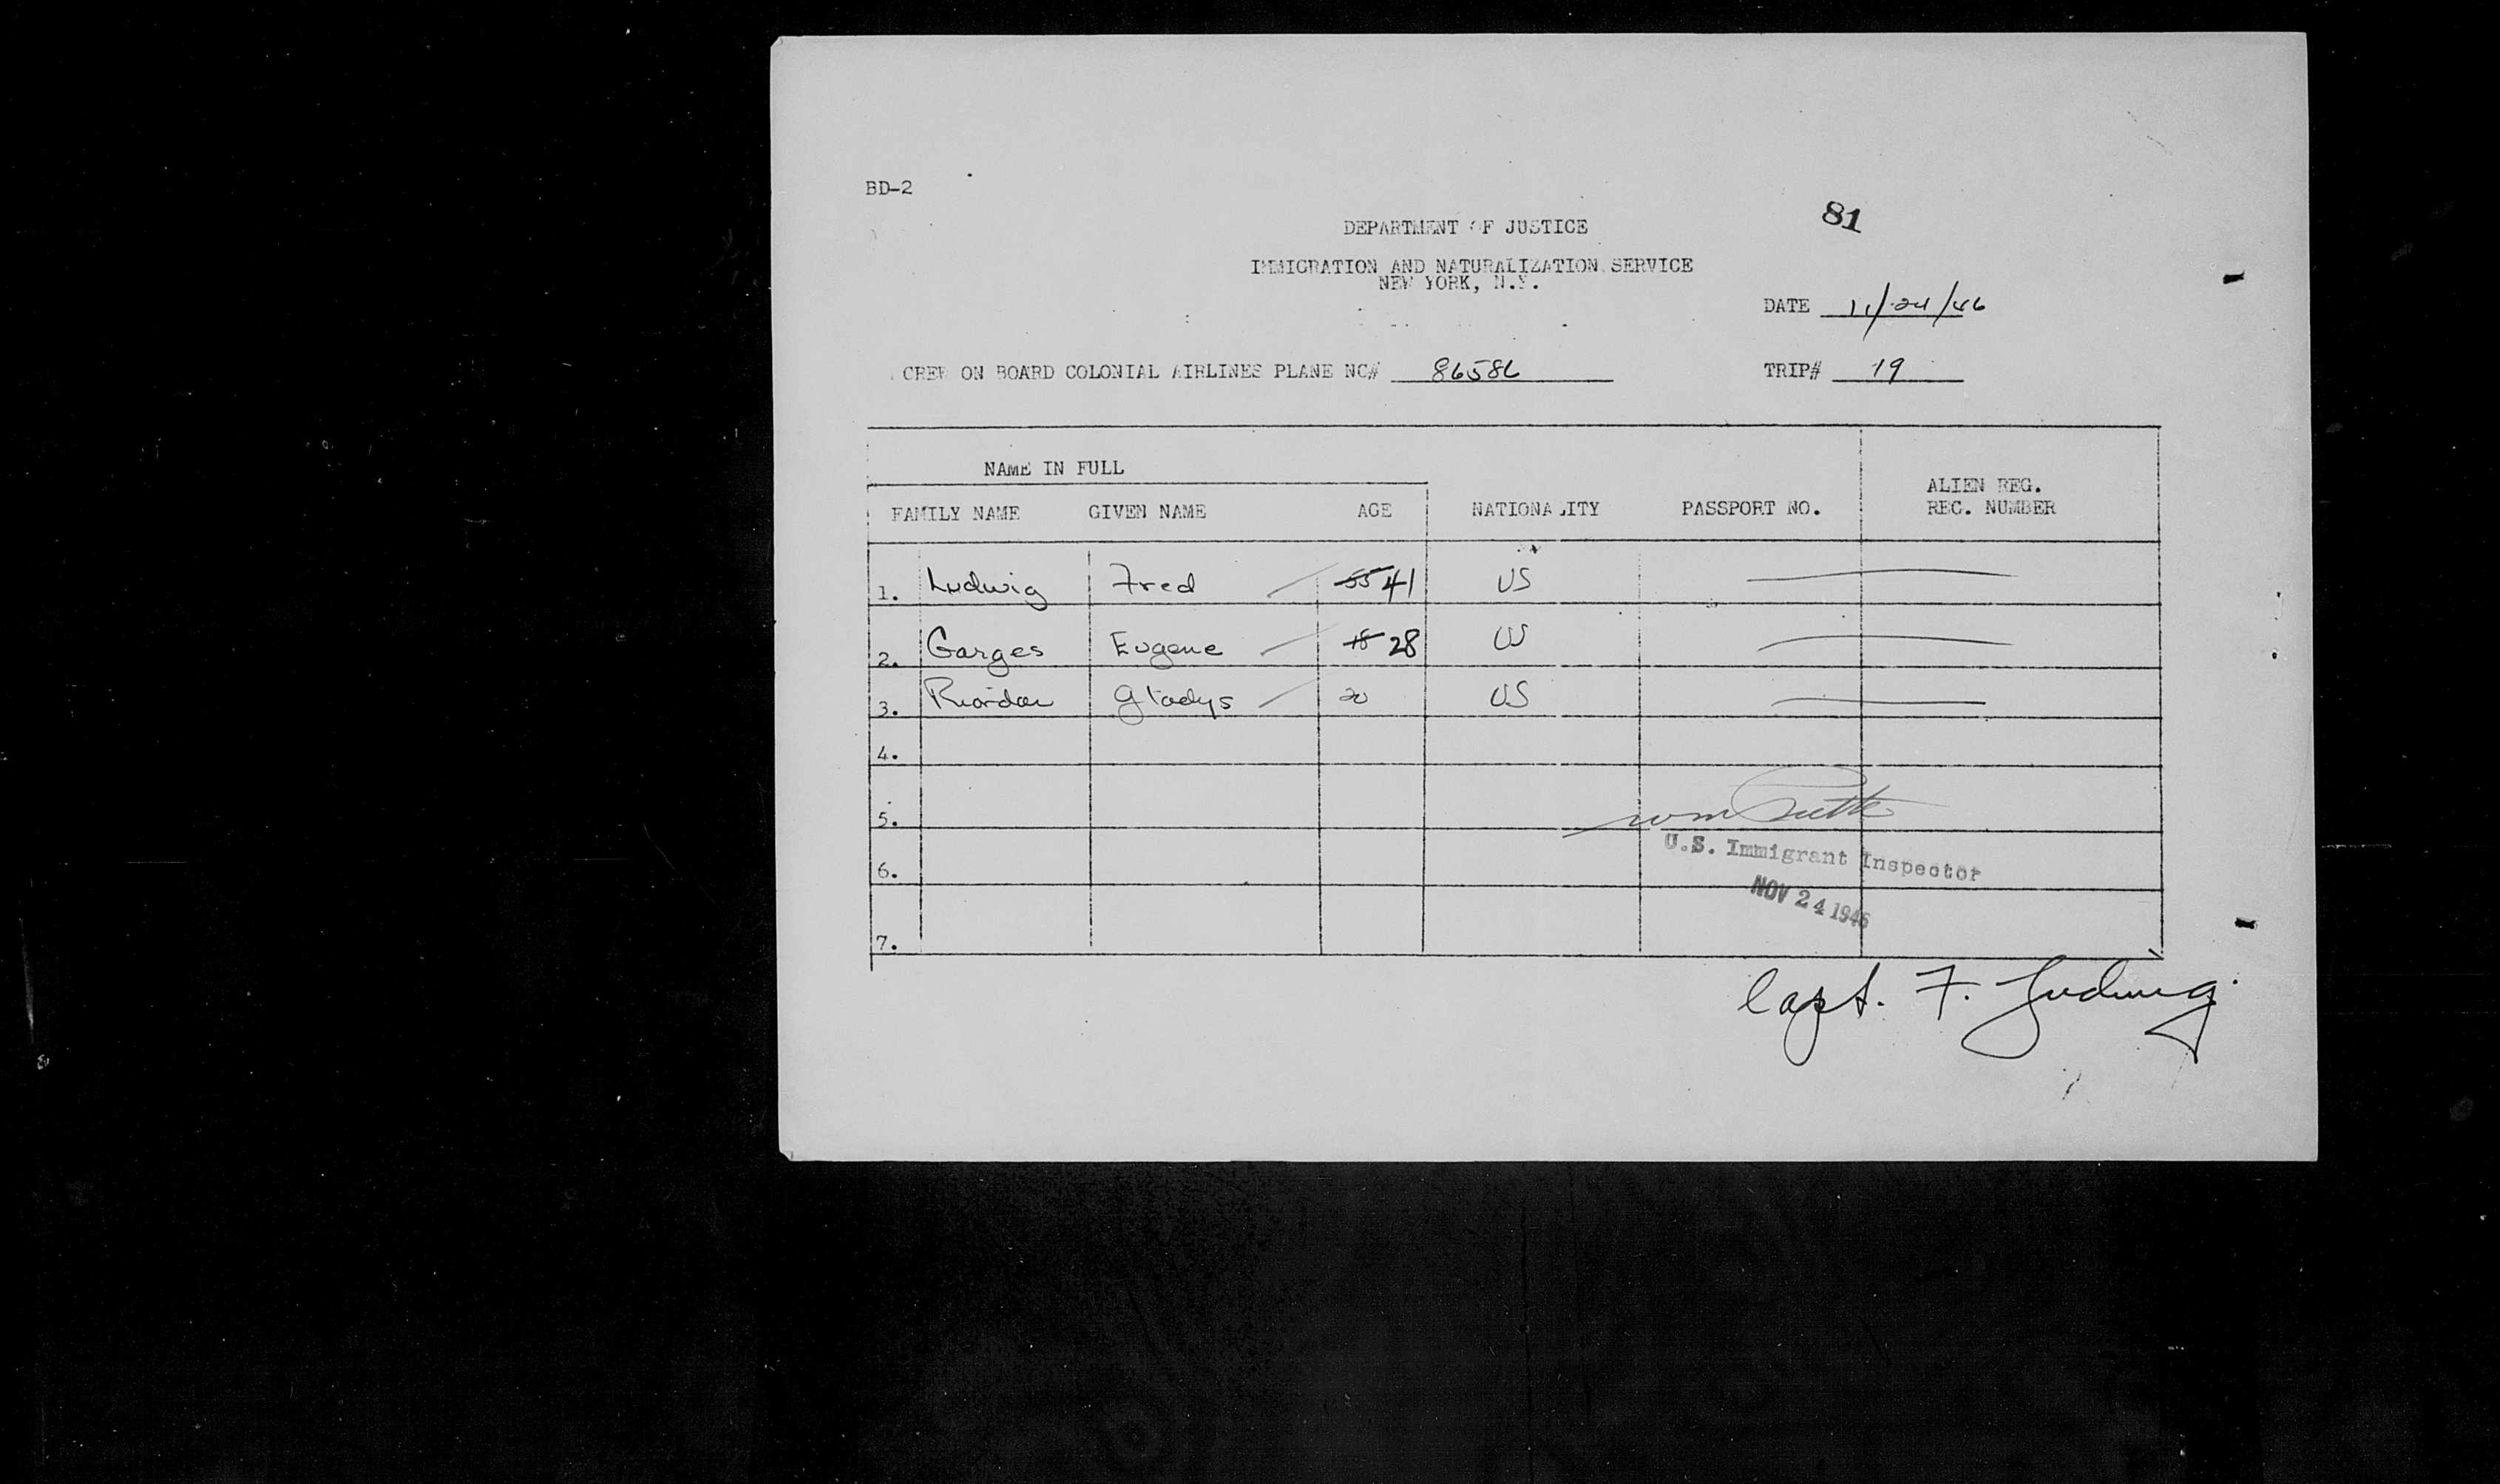 BD-2
81
DEPARTMENT OF JUSTICE
IMMIGRATION AND NATURALIZATION SERVICE
NEW YORK, N.Y.
DATE 11/24/46
CREW ON BOARD COLONIAL AIRLINES PLANE NC# 86586 TRIP# 19
NAME IN FULL
FAMILY NAME GIVEN NAME AGE NATIONALITY PASSPORT NO. ALIEN REG. REC. NUMBER
1. Ludwig Fred 55 41 US
2. Garges Eugene 18 28 US
3. Riordan Gladys 20 US
4.
5. Wm
6. U.S. Immigrant Inspector
NOV 24 1946
7.
Capt. F. Ludwig